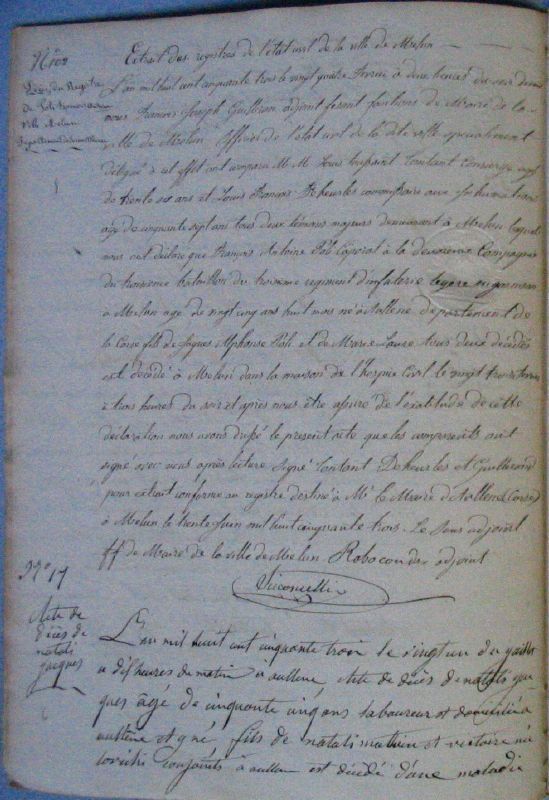 Extrait des registres de l'état civil de la ville de Melun
L'an mil huit cent cinquante trois le vingt quatre fevrier à deux heures du soir devant
nous François Joseph Guilbran adjoint faisant fonctions de Maire de la
ville de Melun Officier de l'état civil de la dite ville specialement
délégué à cet effet ont comparu M M Louis Constant Concierge agé
de trente six ans et Louis François Deheurles commissaire aux
agé de cinquante sept ans tous deux témoins majeurs demeurant à Melun lesquels
nous ont déclaré que François Antoine Poli Caporal à la deuxieme Compagnie
du troisieme bataillon du troisieme regiment d'infanterie legere en garnison
à Melun age de vingt cinq ans huit mois né à Aullene departement de
la Corse fils de Alphonse Poli et de Marie Laure tous deux décédés
est décédé à Melun dans la maison de l'hospice Civil le vingt trois fevrier
à trois heures du soir et après nous être assuré de l'exactitude de cette
déclaration nous avons dressé le present acte que les comparants ont
signé avec nous après lecture Signé Contant Deheurles et Guilbrand
pour extrait conforme au registre destiné à Mr le Maire d'Aullene (Corse)
à Melun le trente Juin mil huit cinquante trois. Le Sous adjoint
ff de Maire de la ville de Melun adjoint
N° 17
Acte de
décès de
natali
jacques
L'an mil huit cent cinquante trois le vingt un du
a dix heures de matin à aullene Acte de décès de natali jac
ques âgé de cinquante cinq ans laboureur et domicilié à
aullene et y né fils de natali mathieu et victoire
conjoints à aullene est décédé d'une maladie